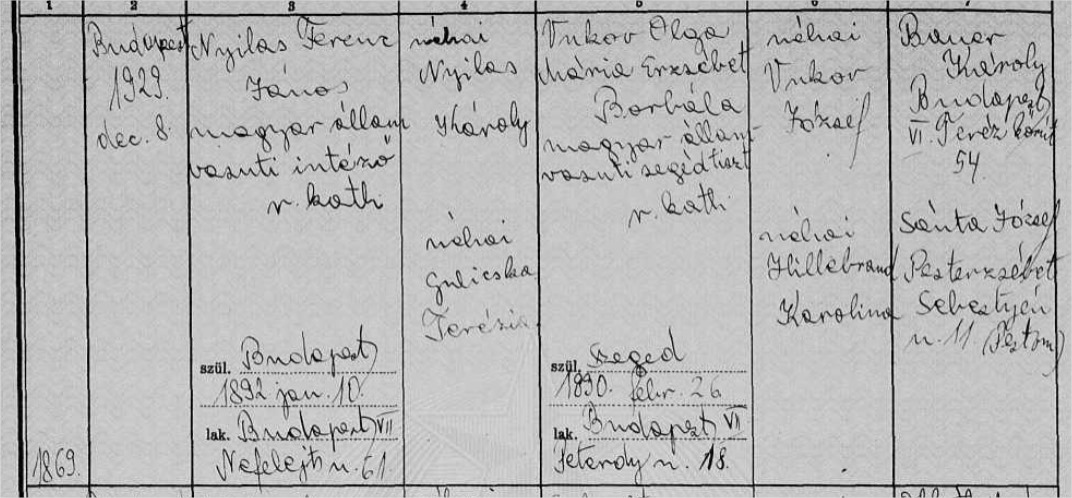 1
2
3
4
5
6
7
Budapest
1929.
dec. 8.
Nyilas Ferenc
János
magyar állam
vasuti intéző
r. kath.
szül. Budapest
1892 jan. 10.
lak. Budapest VII
Nefelejts u. 61
néhai
Nyilas
Károly
néhai
Gulicska
Terézia
Vukov Olga
Mária Erzsébet
Borbála
magyar állam-
vasuti segédtiszt
r. kath.
szül. Szeged
1890. febr. 26
lak. Budapest VII
Peterdy u. 18.
néhai
Vukov
József
néhai
Hillebrand
Karolina
Bauer
Károly
Budapest
VI. Teréz körút
54.
Sánta József
Pesterzsébet
Sebestyén
u. 11 (Pestm)
1869.